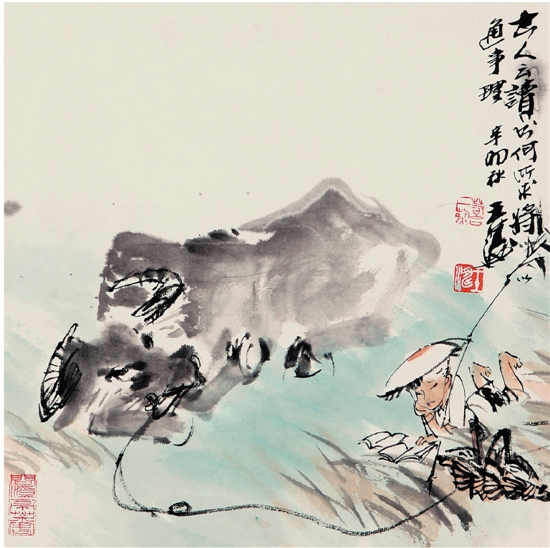 古人云讀書何所求將以
通事理 辛卯秋 王濤